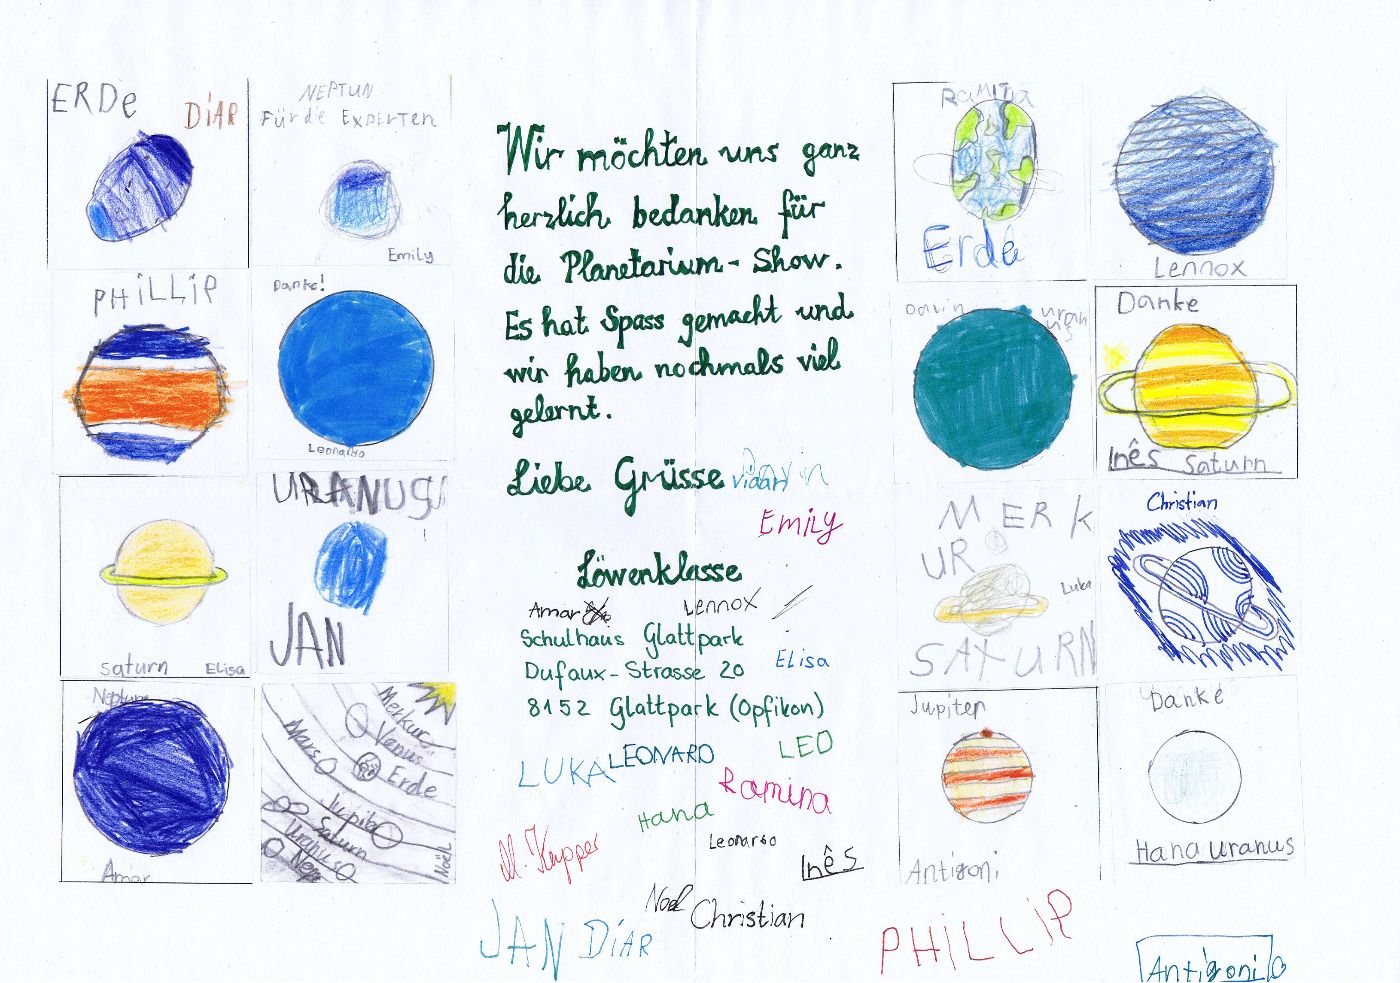 ERDe
DiAR
NEPTUN
Für die EXPERTEN
Emily
PHiLLiP
Danke!
Leonardo
saturn
ELisa
URANUS
JAN
Neptun
Amar
Merkur
Venus
Erde
Mars
Jupiter
Saturn
Uranus
Nep
Noël
Wir möchten uns ganz
herzlich bedanken für
die Planetarium-Show.
Es hat Spass gemacht und
wir haben nochmals viel
gelernt.
Liebe Grüsse
EmiLy
Löwenklasse
Amar
LennoX
Schulhaus Glattpark
Dufaux-Strasse 20
ELisa
8152 Glattpark (Opfikon)
LUKA
LEONARD
LEO
Ramina
Hana
M. Kupper
Leonardo
Inês
Noel
Christian
JAN
DiAR
PHiLLiP
Antigoni
RAMINA
Erde
Lennox
Davin
uran
us
Danke
Inês saturn
MERK
UR
Luka
SATURN
Christian
Jupiter
Antigoni
Danke
Hana uranus